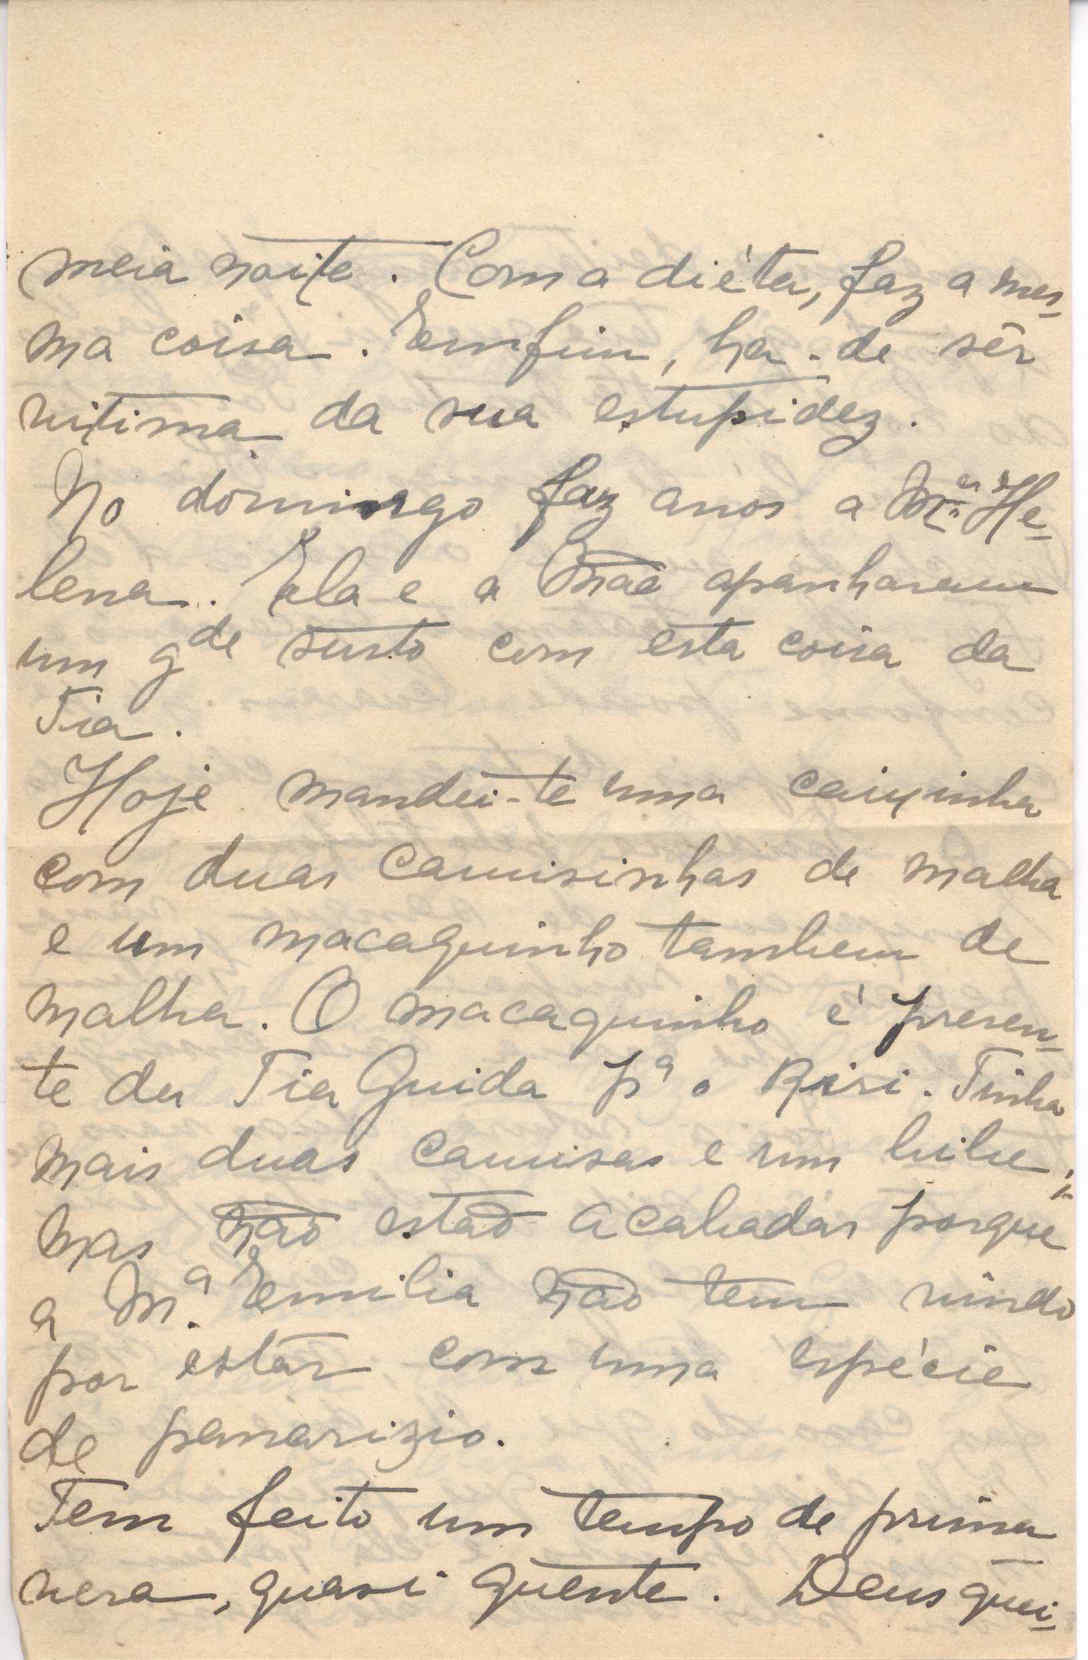 meia noite. Com a diéta, faz a mes-
ma coisa. Emfim, ha-de sêr
vitima da sua estupidez.
No domingo faz anos a Mª He-
lena. Ela e a Mãe apanharam
um gde susto com esta coisa da
Tia.
Hoje mandei-te uma caixinha
com duas camisinhas de malha
e um macaquinho tambem de
malha. O macaquinho é presen-
te da Tia Guida pª o Riri. Tinha
mais duas camisas e um bibe;
mas não estão acabadas porque
a M.ª Emilia não tem vindo
por estar com uma espécie
de panarizio.
Tem feito um tempo de prima
vera, quasi quente. Deus quei-